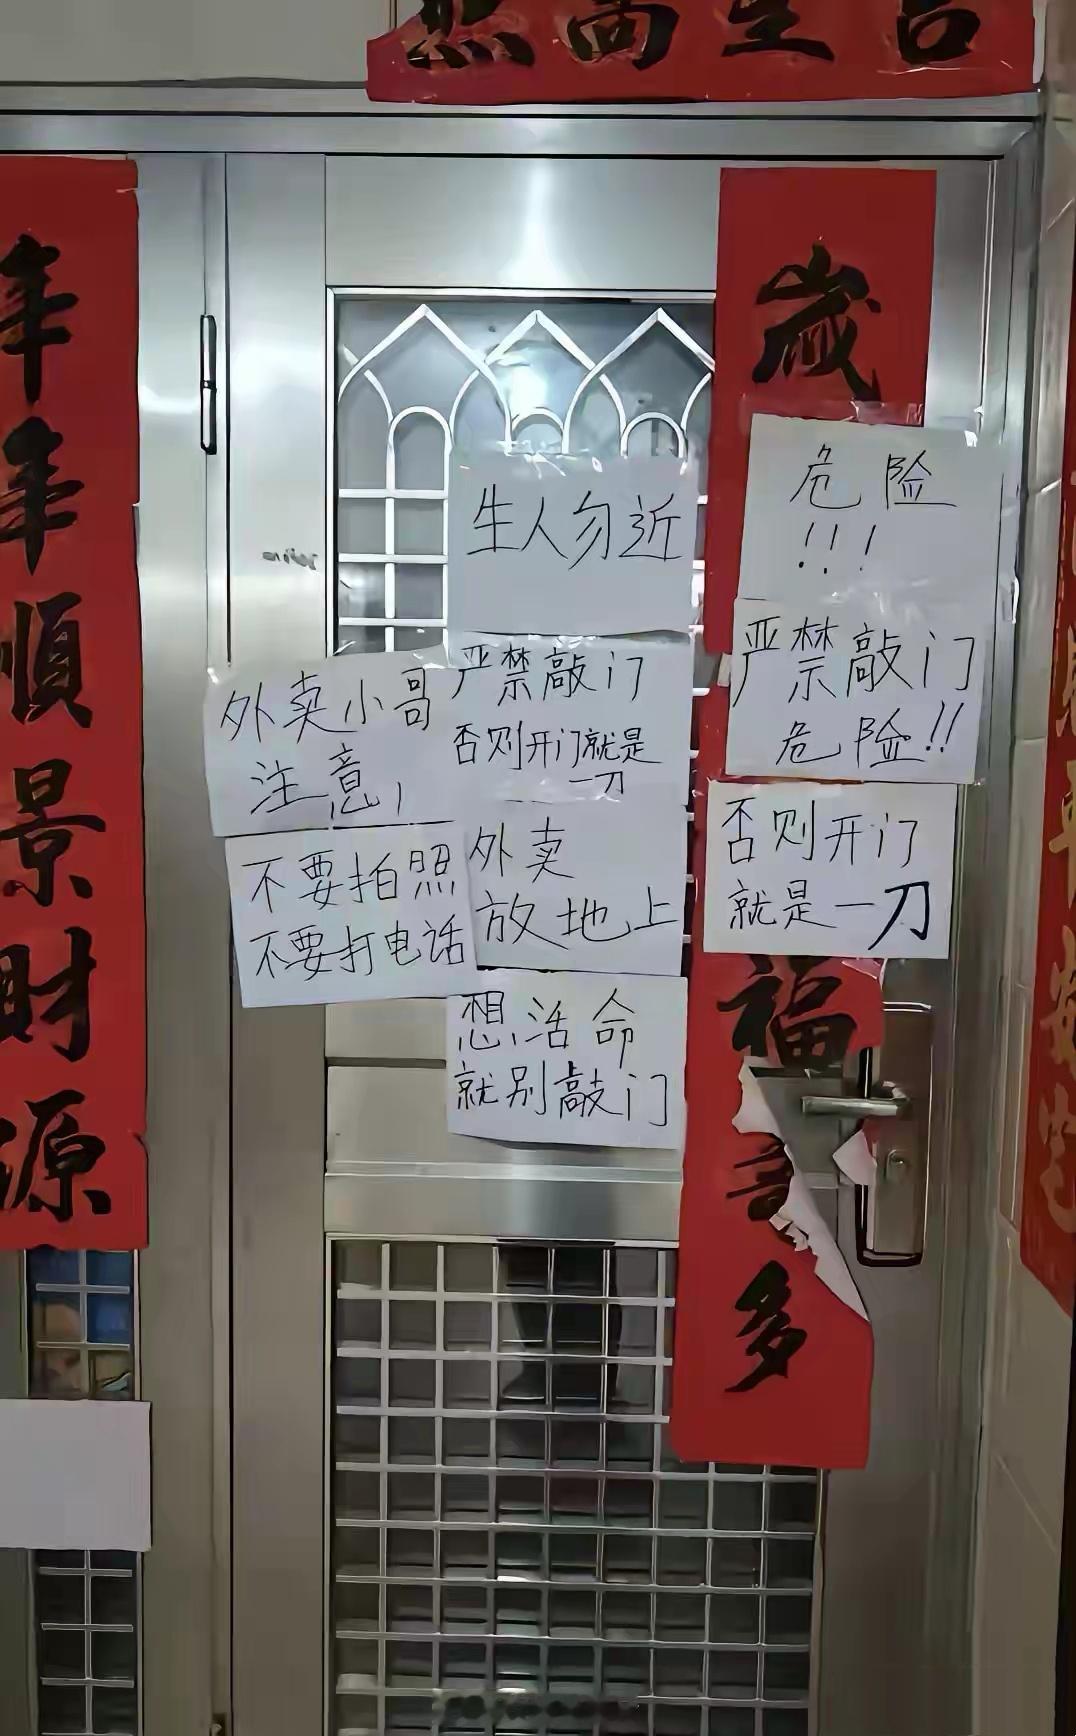 年年順景財源
生人勿近
严禁敲门
否则开门就是
一刀
外卖小哥
注意!
不要拍照
不要打电话
外卖
放地上
想活命
就别敲门
危险
!!!
严禁敲门
危险!!
否则开门
就是一刀
歲
福
多